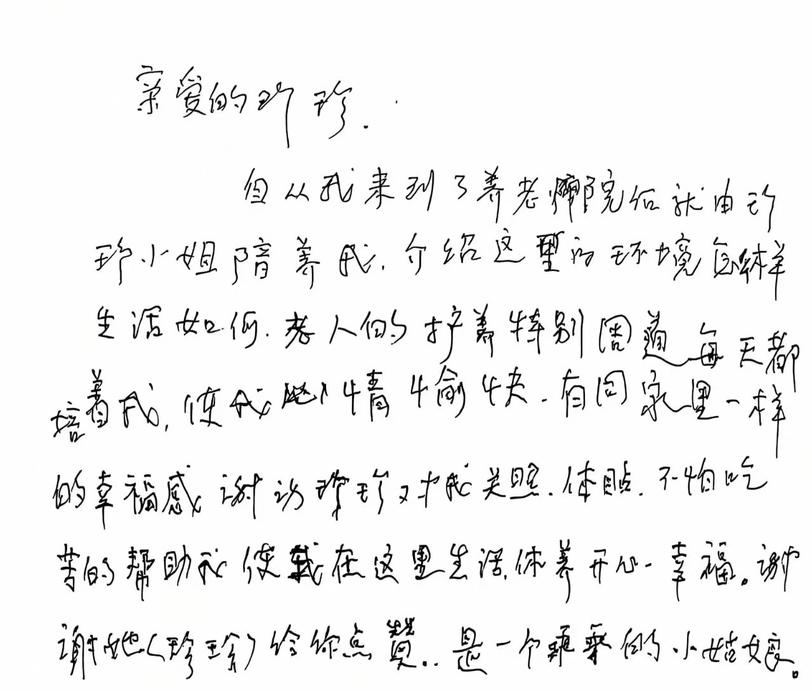 亲爱的珍珍.
但从我来到了养老院后就由珍
珍小姐陪养我.介绍这里的环境怎样
生活如何.老人的护养特别周道每天都
培着我,使我心情愉快.有同家里一样
的幸福感谢访珍珍对我关照.体贴.不怕吃
苦的帮助我使我在这里生活.休养开心幸福。谢
谢她(珍珍)给你点赞..是一个乖的小姑娘。